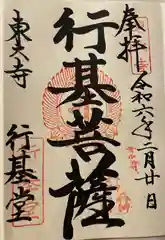 奉拝
令和六年二月廿日
行基菩薩
行基堂
東大寺